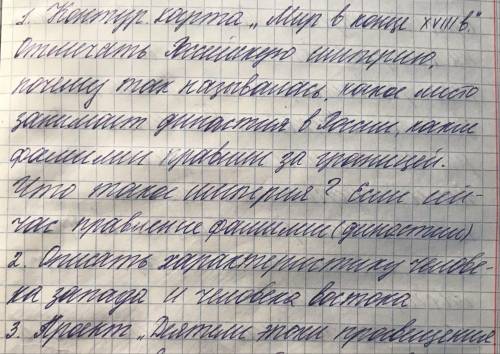 1. Контур. карта „Мир в конце XVIII в."
Отмечать Российскую империю,
почему так называлась, какое место
занимает династия в России, какие
фамилии правили за границей.
Что такое империя? Если сей-
час правление фамилии (династии)
2. Описать характеристику челове-
ка запада и человека востока
3. Проект „Деятели эпохи просвещения